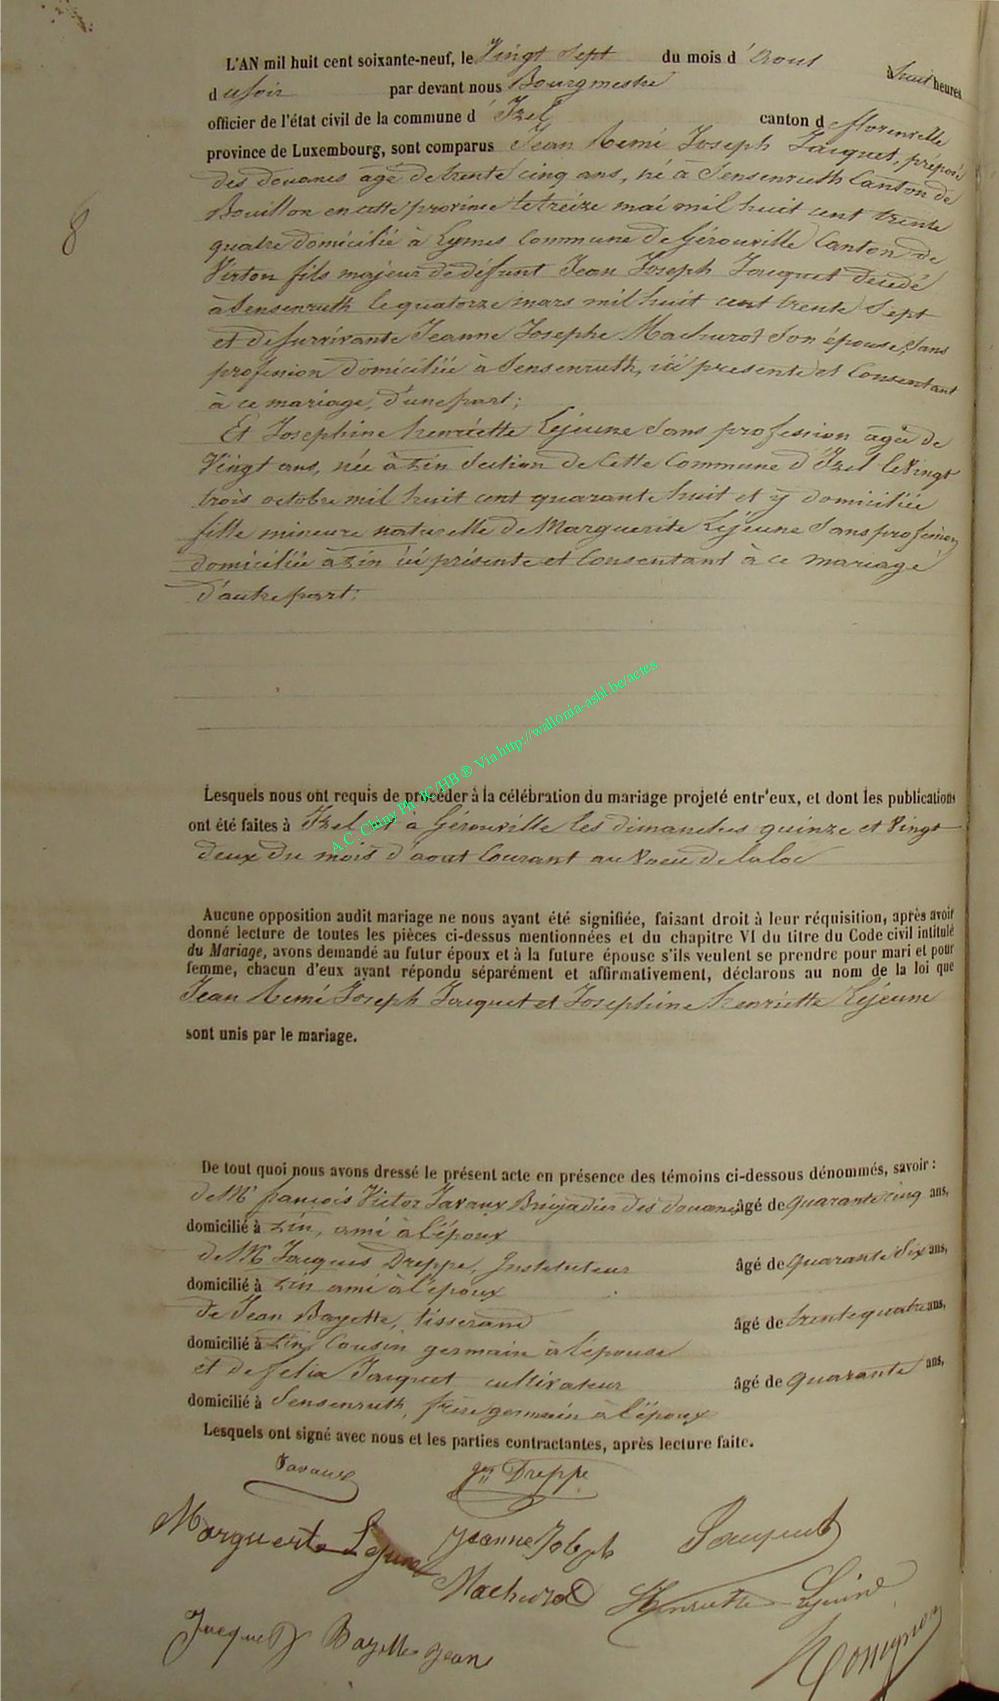 L'AN mil huit cent soixante-neuf, le Vingt sept du mois d'Aout à huit heures
d u soir par devant nous Bourgmestre
officier de l'état civil de la commune d'Izel canton de florenville
province de Luxembourg, sont comparus Jean Remi Joseph Jacquet, préposé
des douanes agé de trente cinq ans, né à Sensenruth Canton de
Bouillon en cette province le treize mai mil huit cent trente
quatre domicilié à Lymes Commune de Gérouville Canton de
Virton fils majeur de défunt Jean Joseph Jacquet décédé
à Sensenruth le quatorze mars mil huit cent trente Sept
8
et de survivante Jeanne Josephe Machurot Son épouse, Sans
profession domiciliée à Sensenruth, ici présente et Consentant
à ce mariage, d'une part;
Et Josephine henriette Lejeune Sans profession agée de
Vingt ans, née à Pin Section de Cette Commune d'Izel le Vingt
trois octobre mil huit cent quarante huit et y domiciliée
fille mineure naturelle de Marguerite Lejeune Sans profession
domiciliée à Pin ici présente et Consentant à ce mariage
d'autre part:
Lesquels nous ont requis de procéder à la célébration du mariage projeté entr'eux, et dont les publications
ont été faites à Izel et à Gérouville les dimanches quinze et Vingt
deux du mois d'aout Courant au Voeu de la loi
A.C Chiny Ph JC/HB ® Via http://wallonia-asbl.be/actes
Aucune opposition audit mariage ne nous ayant été signifiée, faisant droit à leur réquisition, après avoir
donné lecture de toutes les pièces ci-dessus mentionnées et du chapitre VI du titre du Code civil intitulé
du Mariage, avons demandé au futur époux et à la future épouse s'ils veulent se prendre pour mari et pour
femme, chacun d'eux ayant répondu séparément et affirmativement, déclarons au nom de la loi que
Jean Remi Joseph Jacquet et Josephine henriette Lejeune
sont unis par le mariage.
De tout quoi nous avons dressé le présent acte en présence des témoins ci-dessous dénommés, savoir :
de Mr françois Victor Tavaux Brigadier des douanes âgé de quarante cinq ans,
domicilié à Pin, ami à l'époux
de Mr Jacques Dreppe, Instituteur âgé de quarante Six ans,
domicilié à Pin ami à l'époux
de Jean Bayette, tisserand âgé de trente quatre ans,
domicilié à Pin Cousin germain à l'épouse
et de felix Jacquet cultivateur âgé de quarante ans,
domicilié à Sensenruth, frère germain à l'époux
Lesquels ont signé avec nous et les parties contractantes, après lecture faite.
Tavaux Dreppe
Marguerite Lejeune Jeanne Joseph Jacquet
Machurot Henriette Lejeune
Jacquet Bayette Jean